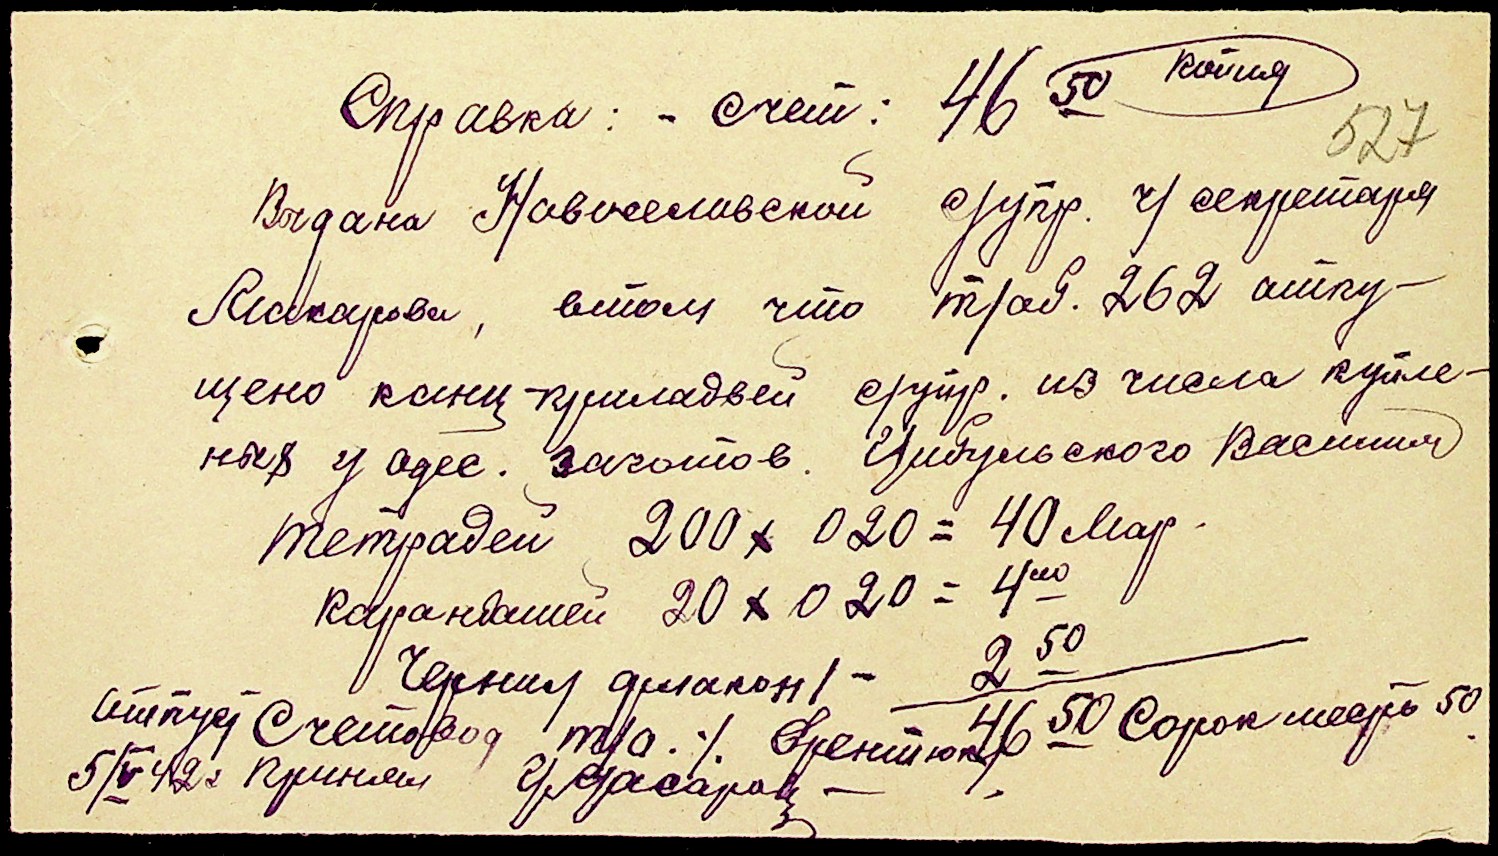 Справка: - счет: 46 50 Копия
527
Выдана Новоселовской с/упр. ч/ секретаря
Макарова, втом что т/об. 262 отпу-
щено канц-прикладвей с/упр. из числа купле-
ных у одес. заготов. Цибульского Василия
Тетрадей 200 x 0 20 = 40 Мар.
Карандашей 20 x 0 20 = 4 00
Чернил флакон 1 - 2 50
46 50 Сорок шесть 50
Отпуст Счетовод т/о
5/V 42 г Принял